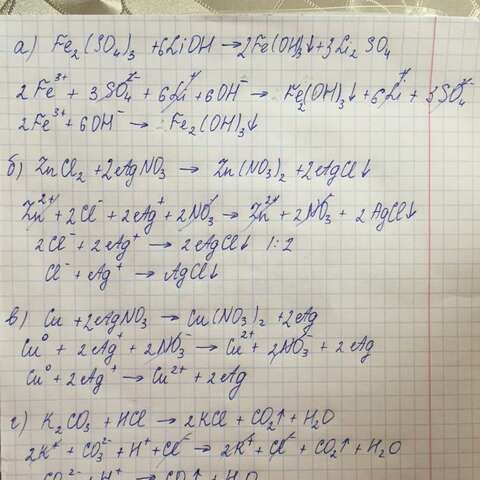 а) Fe₂(SO₄)₃ + 6LiOH → 2Fe(OH)₃↓ + 3Li₂SO₄
2Fe³⁺ + 3SO₄²⁻ + 6Li⁺ + 6OH⁻ → Fe₂(OH)₃↓ + 6Li⁺ + 3SO₄²⁻
2Fe³⁺ + 6OH⁻ → Fe₂(OH)₃↓
б) ZnCl₂ + 2AgNO₃ → Zn(NO₃)₂ + 2AgCl↓
Zn²⁺ + 2Cl⁻ + 2Ag⁺ + 2NO₃⁻ → Zn²⁺ + 2NO₃⁻ + 2AgCl↓
2Cl⁻ + 2Ag⁺ → 2AgCl↓ 1:2
Cl⁻ + Ag⁺ → AgCl↓
в) Cu + 2AgNO₃ → Cu(NO₃)₂ + 2Ag
Cu⁰ + 2Ag⁺ + 2NO₃⁻ → Cu²⁺ + 2NO₃⁻ + 2Ag
Cu⁰ + 2Ag⁺ → Cu²⁺ + 2Ag
г) K₂CO₃ + HCl → 2KCl + CO₂↑ + H₂O
2K⁺ + CO₃²⁻ + H⁺ + Cl⁻ → 2K⁺ + Cl⁻ + CO₂↑ + H₂O
CO₃²⁻ + H⁺ → CO₂↑ + H₂O